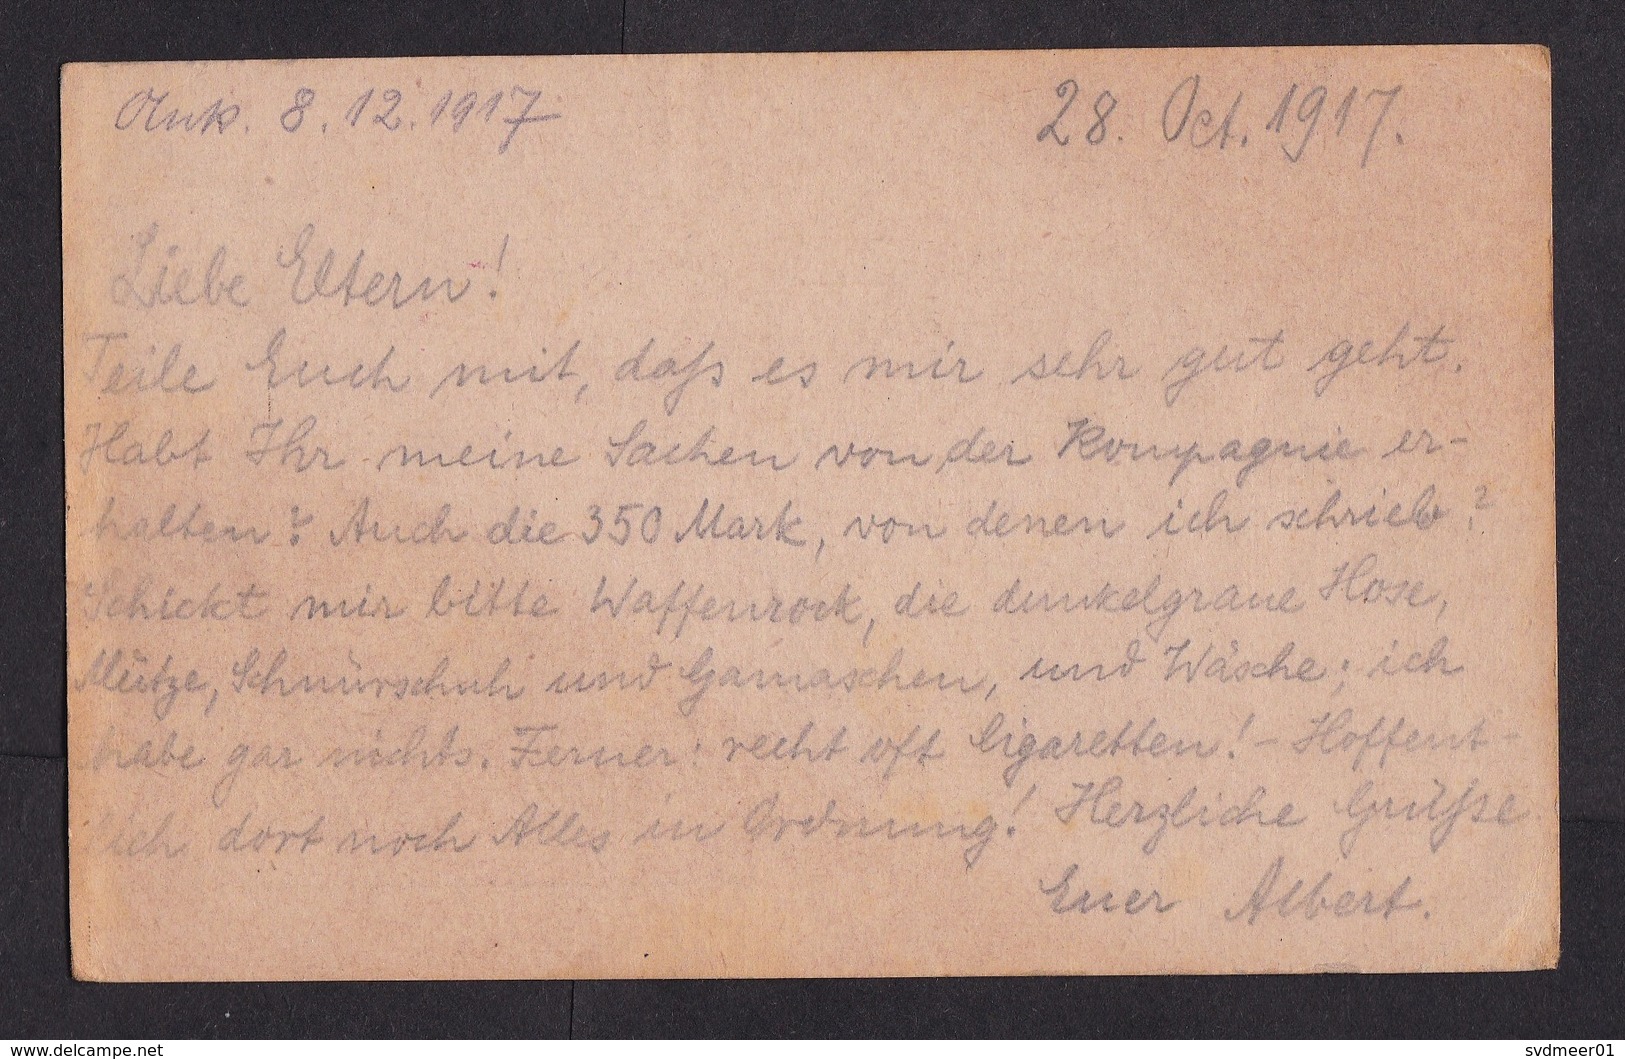 Ank. 8.12.1917
28. Oct. 1917.
Liebe Eltern!
Teile Euch mit, daß es mir sehr gut geht.
Habt Ihr meine Sachen von der Kompagnie er-
halten? Auch die 350 Mark, von denen ich schrieb?
Schickt mir bitte Waffenrock, die dunkelgraue Hose,
Mütze, Schnürschuh und Gamaschen, und Wäsche; ich
habe gar nichts. Ferner: recht oft Cigaretten! - Hoffent-
lich dort noch Alles in Ordnung! Herzliche Grüße
Euer Albert.
www.delcampe.net
svdmeer01